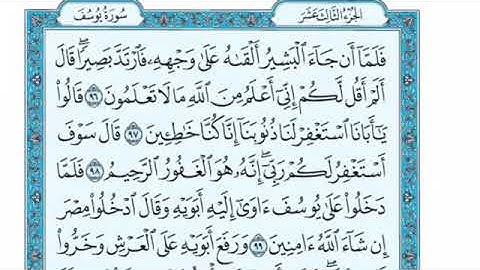 الجزء الثالث عشر
سورة يوسف
فَلَمَّآ أَن جَآءَ ٱلۡبَشِيرُ أَلۡقَىٰهُ عَلَىٰ وَجۡهِهِۦ فَٱرۡتَدَّ بَصِيرٗاۖ قَالَ
أَلَمۡ أَقُل لَّكُمۡ إِنِّيٓ أَعۡلَمُ مِنَ ٱللَّهِ مَا لَا تَعۡلَمُونَ ٩٦ قَالُواْ
يَٰٓأَبَانَا ٱسۡتَغۡفِرۡ لَنَا ذُنُوبَنَآ إِنَّا كُنَّا خَٰطِـِٔينَ ٩٧ قَالَ سَوۡفَ
أَسۡتَغۡفِرُ لَكُمۡ رَبِّيٓۖ إِنَّهُۥ هُوَ ٱلۡغَفُورُ ٱلرَّحِيمُ ٩٨ فَلَمَّا
دَخَلُواْ عَلَىٰ يُوسُفَ ءَاوَىٰٓ إِلَيۡهِ أَبَوَيۡهِ وَقَالَ ٱدۡخُلُواْ مِصۡرَ
إِن شَآءَ ٱللَّهُ ءَامِنِينَ ٩٩ وَرَفَعَ أَبَوَيۡهِ عَلَى ٱلۡعَرۡشِ وَخَرُّواْ